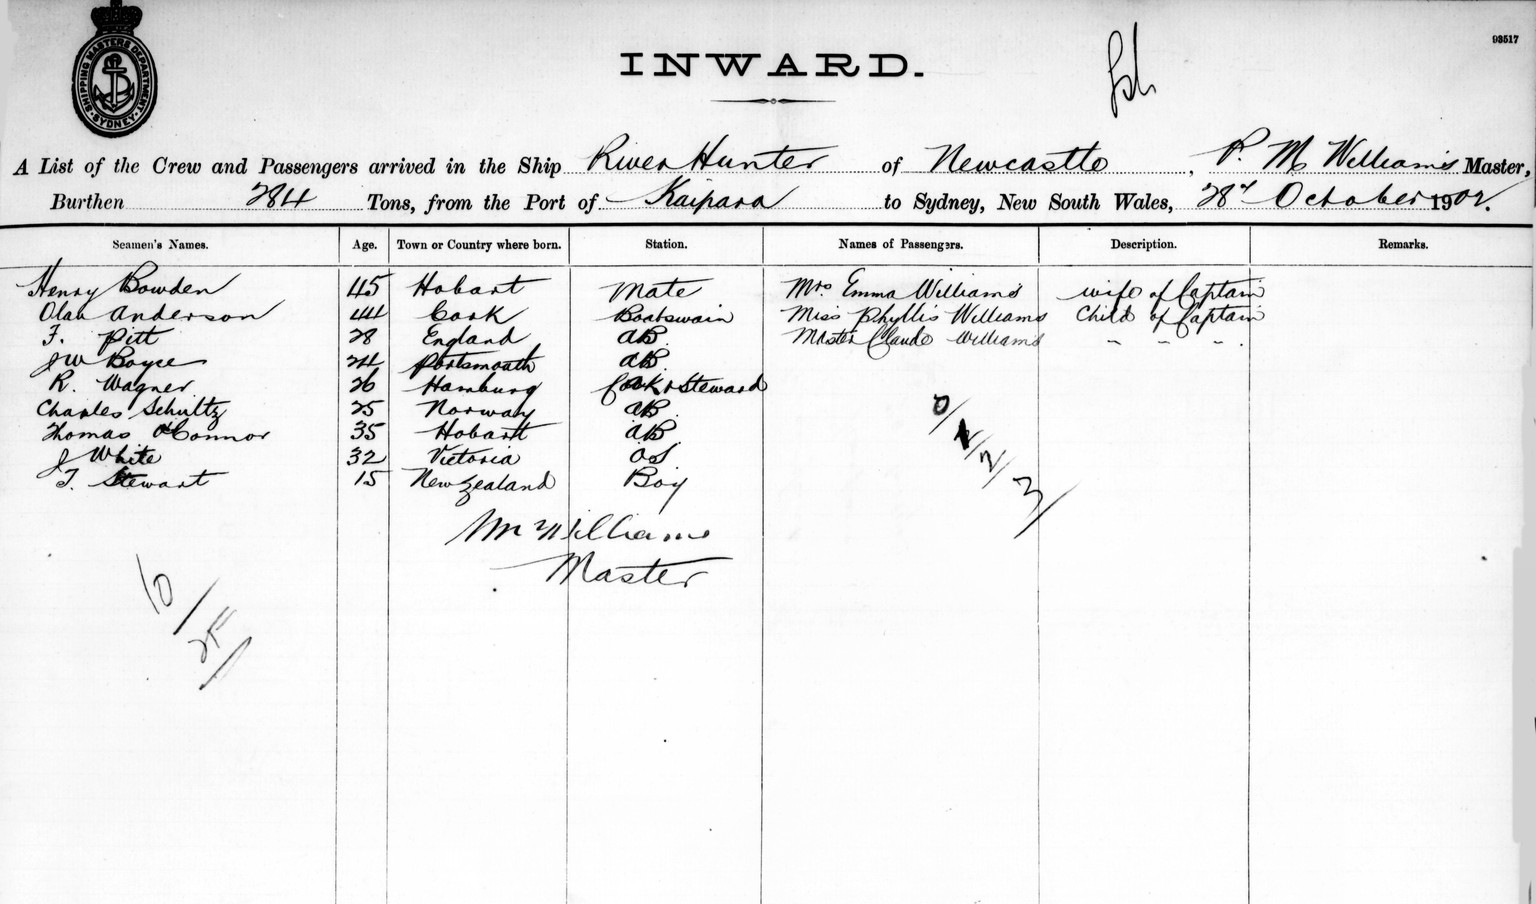 93517
SHIPPING MASTERS DEPARTMENT
SYDNEY
INWARD.
A List of the Crew and Passengers arrived in the Ship River Hunter of Newcastle, P. M Williams Master,
Burthen 284 Tons, from the Port of Kaipara to Sydney, New South Wales, 28th October 1902.
Seamen's Names. Age. Town or Country where born. Station. Names of Passengers. Description. Remarks.
Henry Bowden 45 Hobart Mate Mrs Emma Williams wife of Captain
Olan Anderson 44 Cork Boatswain Miss Phyllis Williams Child of Captain
F. Pitt 28 England AB Master Claude Williams " " "
JW Boyce 24 Portsmouth AB
R. Wagner 26 Hamburg Cook & Steward
Charles Schultz 25 Norway AB
Thomas O'Connor 35 Hobart AB
J White 32 Victoria OS
T. Stewart 15 New Zealand Boy
0/1/2/3
M Williams
Master
10/